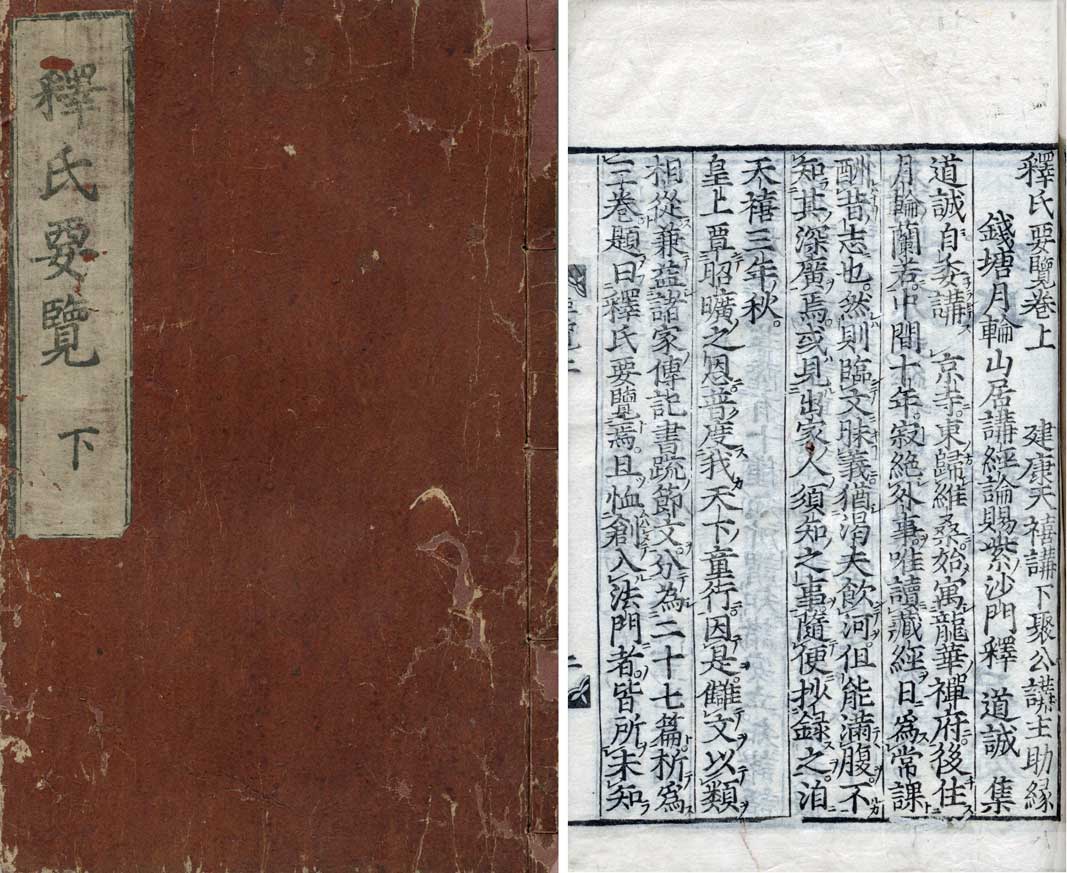 釋氏要覽 下
釋氏要覽卷上 建康天禧講下聚公講主助緣
錢塘月輪山居講經論賜紫沙門釋 道誠 集
道誠自委講 京寺東歸維桑始寓龍華禪府後住
月輪蘭若中間十年寂絶外事唯讀藏經日爲常課
酬昔志也然則臨文昧義猶渴夫飲河但能滿腹不
知其深廣焉或見出家人須知之事隨便抄録之洎
天禧三年秋
皇上覃昭曠之恩普度我天下童行因是讎文以類
相從兼益諸家傳記書疏節文分為二十七篇析為
三卷題曰釋氏要覽焉且恤創入法門者皆所未知